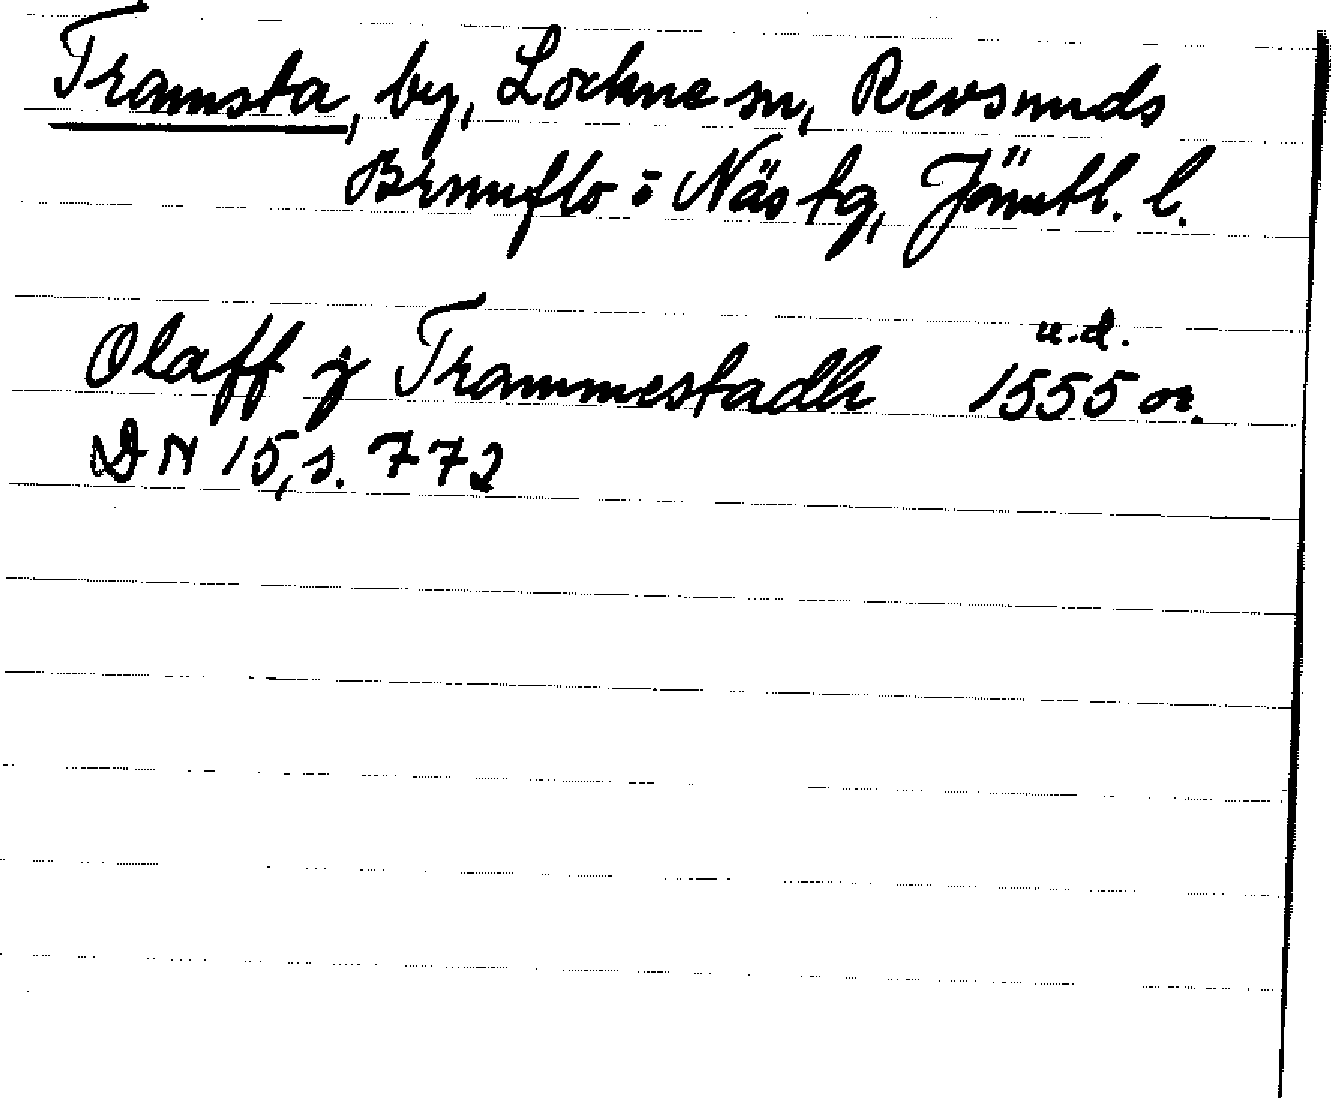 Tramsta, by, Lockne sn, Revsunds
Brunflo o Näs tg, Jämtl. l.
u.d.
Olaff j Trammestadh 1555 or.
DN 15, s. 772